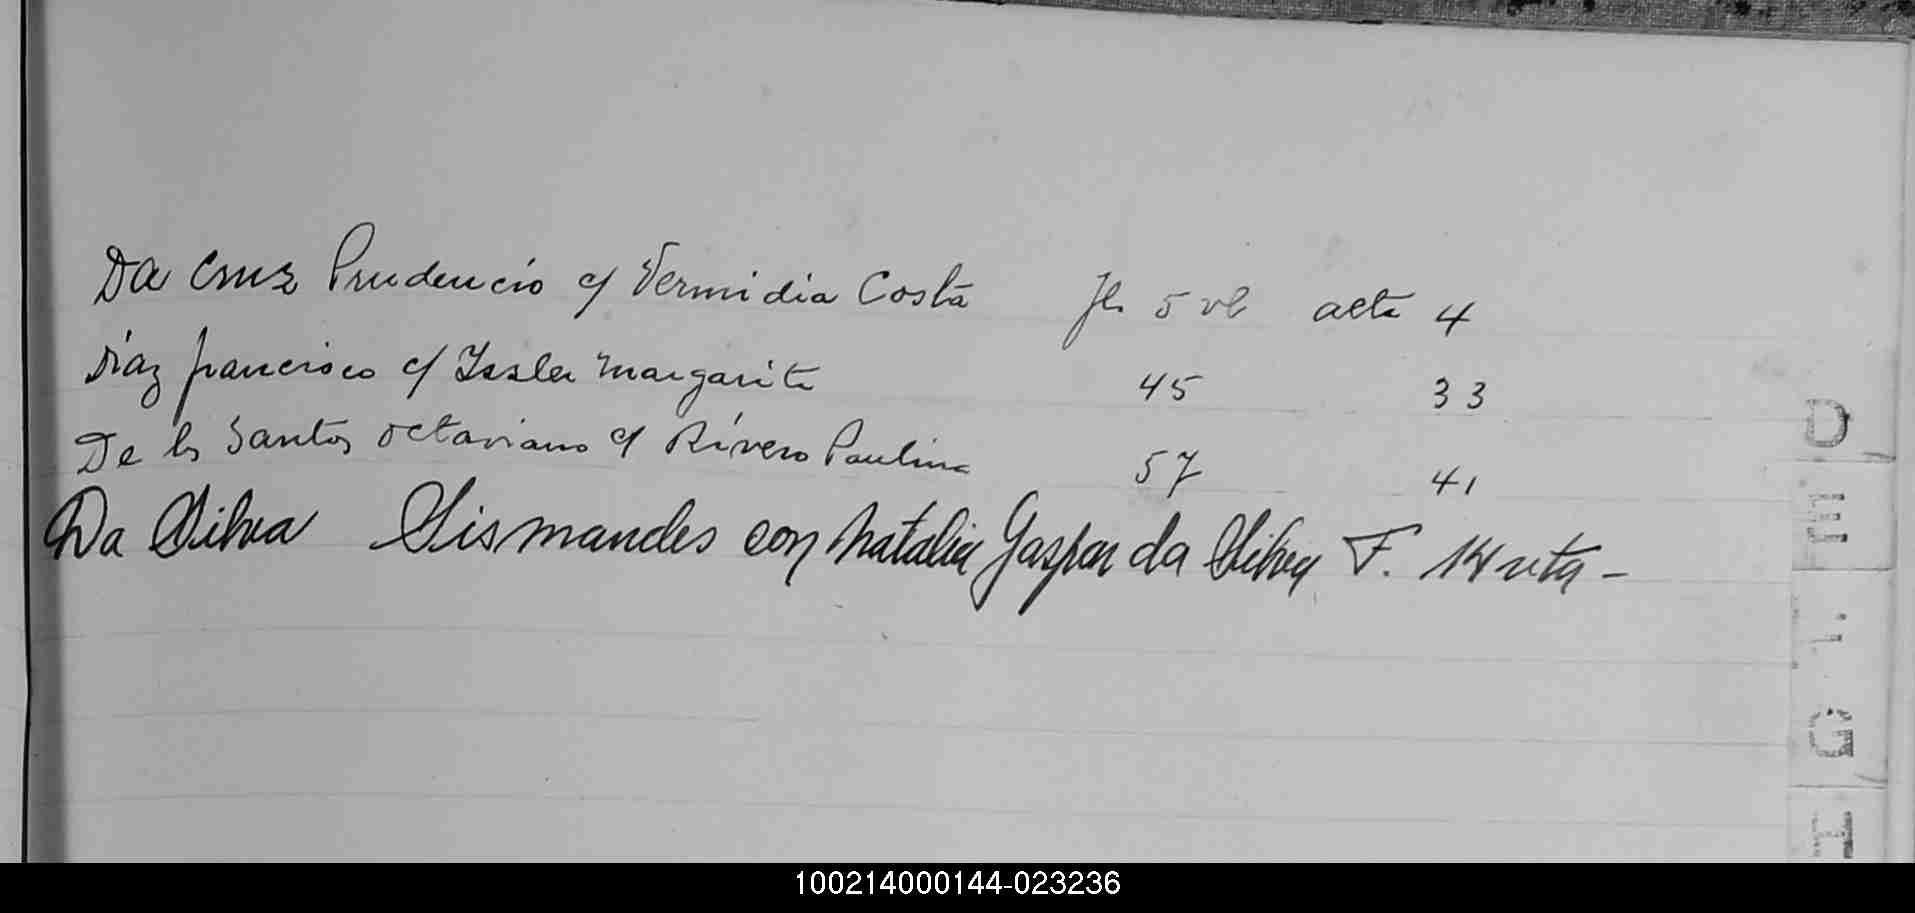 Da Cruz Prudencio c/ Vermidia Costa Fl. 5 vl acta 4
Diaz francisco c/ Issler Margarita 45 33
De ls Santos octaviano c/ Rivero Paulina 57 41
Da Silva Sismandes con Natalia Gaspar da Silva F. 14 vta -
D
E
F
G
H
100214000144-023236